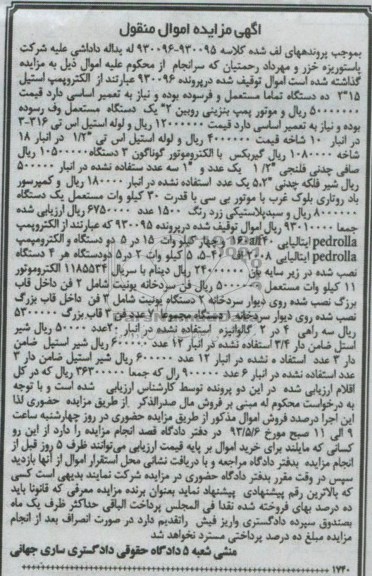 آگهی مزایده اموال منقول
بموجب پرونده‌های لف شده کلاسه ۹۳۰۰۹۵-۹۳۰۰۹۶ له یداله داداشی علیه شرکت
پاستوریزه خزر و مهرداد رحمتیان که سرانجام از محکوم علیه اموال ذیل به مزایده
گذاشته شده است اموال توقیف شده درپرونده ۹۳۰۰۹۶ عبارتند از الکتروپمپ استیل
۳"۱۵ ده دستگاه تماما مستعمل و فرسوده بوده و نیاز به تعمیر اساسی دارد قیمت
ریال و موتور پمپ بنزینی روبین ۲" یک دستگاه مستعمل وف رسوده
بوده و نیاز به تعمیر اساسی دارد قیمت ۱۲۰۰۰۰۰ ریال و لوله استیل اس تی ۳۱۶-۳
در انبار ۱۰ شاخه قیمت ۴۰۰۰۰۰۰ ریال و لوله استیل اس تی ۱/۲" در انبار ۱۸
شاخه ۱۰۸۰۰۰۰ ریال گیربکس با الکتروموتور گوناگون ۳ دستگاه ۱۰۵۰۰۰۰۰ ریال
صافی چدنی فلنجی ۱/۲" ۱ یک عدد و ۱" سه عدد استفاده نشده در انبار ۵۰۰۰۰۰
ریال شیر فلکه چدنی ۵،۳" یک عدد استفاده نشده در انبار ۱۸۰۰۰۰ ریال و کمپرسور
باد روتاری بلوک غرب با موتور بی سی با قدرت ۳۰ کیلو وات مستعمل یک دستگاه
۸۰۰۰۰۰۰ ریال و سبدپلاستیکی زرد رنگ ۱۵۰۰ عدد ۶۷۵۰۰۰۰ ریال ارزیابی شده
جمعا ۹۳۰۱۰۰۰۰ ریال اموال توقیف شده درپرونده ۹۳۰۰۹۵ که عبارتند از الکتروپمپ
pedrolla ایتالیایی چهار کیلو وات ۱۵ در ۵ دو دستگاه و الکتروپمپ
pedrolla ایتالیایی کیلو وات ۲ در۵ دودستگاه هر ۴ دستگاه
نصب شده در زیر سایه بان ۲۴۰۰۰۰۰۰ ریال دینام با سریال ۱۱۸۵۵۳۴ الکتروموتور
۱۱ کیلو وات مستعمل ریال فن سردخانه یونیت شامل ۲ فن داخل قاب
بزرگ نصب شده روی دیوار سردخانه ۲ دستگاه یونیت شامل ۳ فن داخل قاب بزرگ
نصب شده روی دیوار سردخانه دستگاه مجموعا عدد فن ۳ قاب بزرگ
ریال سه راهی ۴ در ۲ گالوانیزه استفاده نشده در انبار ۲۰عدد ۵۰۰۰ ریال شیر
استل ضامن دار ۳/۴ استفاده نشده در انبار ۱۲ عدد ۶۰۰۰۰۰ ریال شیر استیل ضامن
دار ۳ عدد استفاد ه نشده در انبار ۱۲ عدد ۶۰۰۰۰۰ ریال شیر استیل ضامن دار ۳
عدد استفاده نشده در انبار ۶ عدد ۹۰۰۰۰۰ رال که جمعا ۳۶۳۰۰۰۰۰ ریال که در کل
اقلام ارزیابی شده در این دو پرونده توسط کارشناس ارزیابی شده است و با توجه
به درخواست محکوم له مبنی بر فروش مال صدرالذکر از طریق مزایده حضوری لذا
این اجرا درصدد فروش اموال مذکور از طریق مزایده حضوری در روز چهارشنبه ساعت
۹ الی ۱۱ صبح مورخ ۹۳/۵/۶ در دفتر دادگاه قصد انجام مزایده را دارد از این رو
کسانی که مایلند برای خرید اموال بر پایه قیمت ارزیابی می‌توانند ظرف ۵ روز قبل از
انجام مزایده بدفتر دادگاه مراجعه و با دریافت نشانی محل استقرار اموال از آنها بازدید
سپس در وقت مقرر بدفتر دادگاه حضوری در مزایده شرکت نمایند بدیهی است کسی
که بالاترین رقم پیشنهادی پیشنهاد نماید بعنوان برنده مزایده معرفی که قانونا باید
ده درصد بهای فروخته شده نقدا فی المجلس پرداخت الباقی حداکثر ظرف یک ماه
بصندوق سپرده دادگستری واریز فیش راتقدیم دارد در صورت انصراف بعد از انجام
مزایده مبلغ ده درصد پرداختی مسترد نخواهد شد
منشی شعبه ۵ دادگاه حقوقی دادگستری ساری جهانی
۱۷۴۰